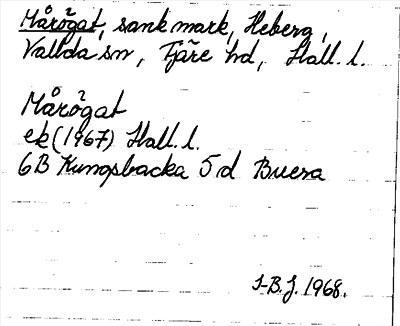 Mårögat, sank mark, Heberg,
Vallda sn, Fjäre hd, Hall. l.
Mårögat
ek (1967) Hall. l.
6B Kungsbacka 5 d Buera
I-B.J. 1968.